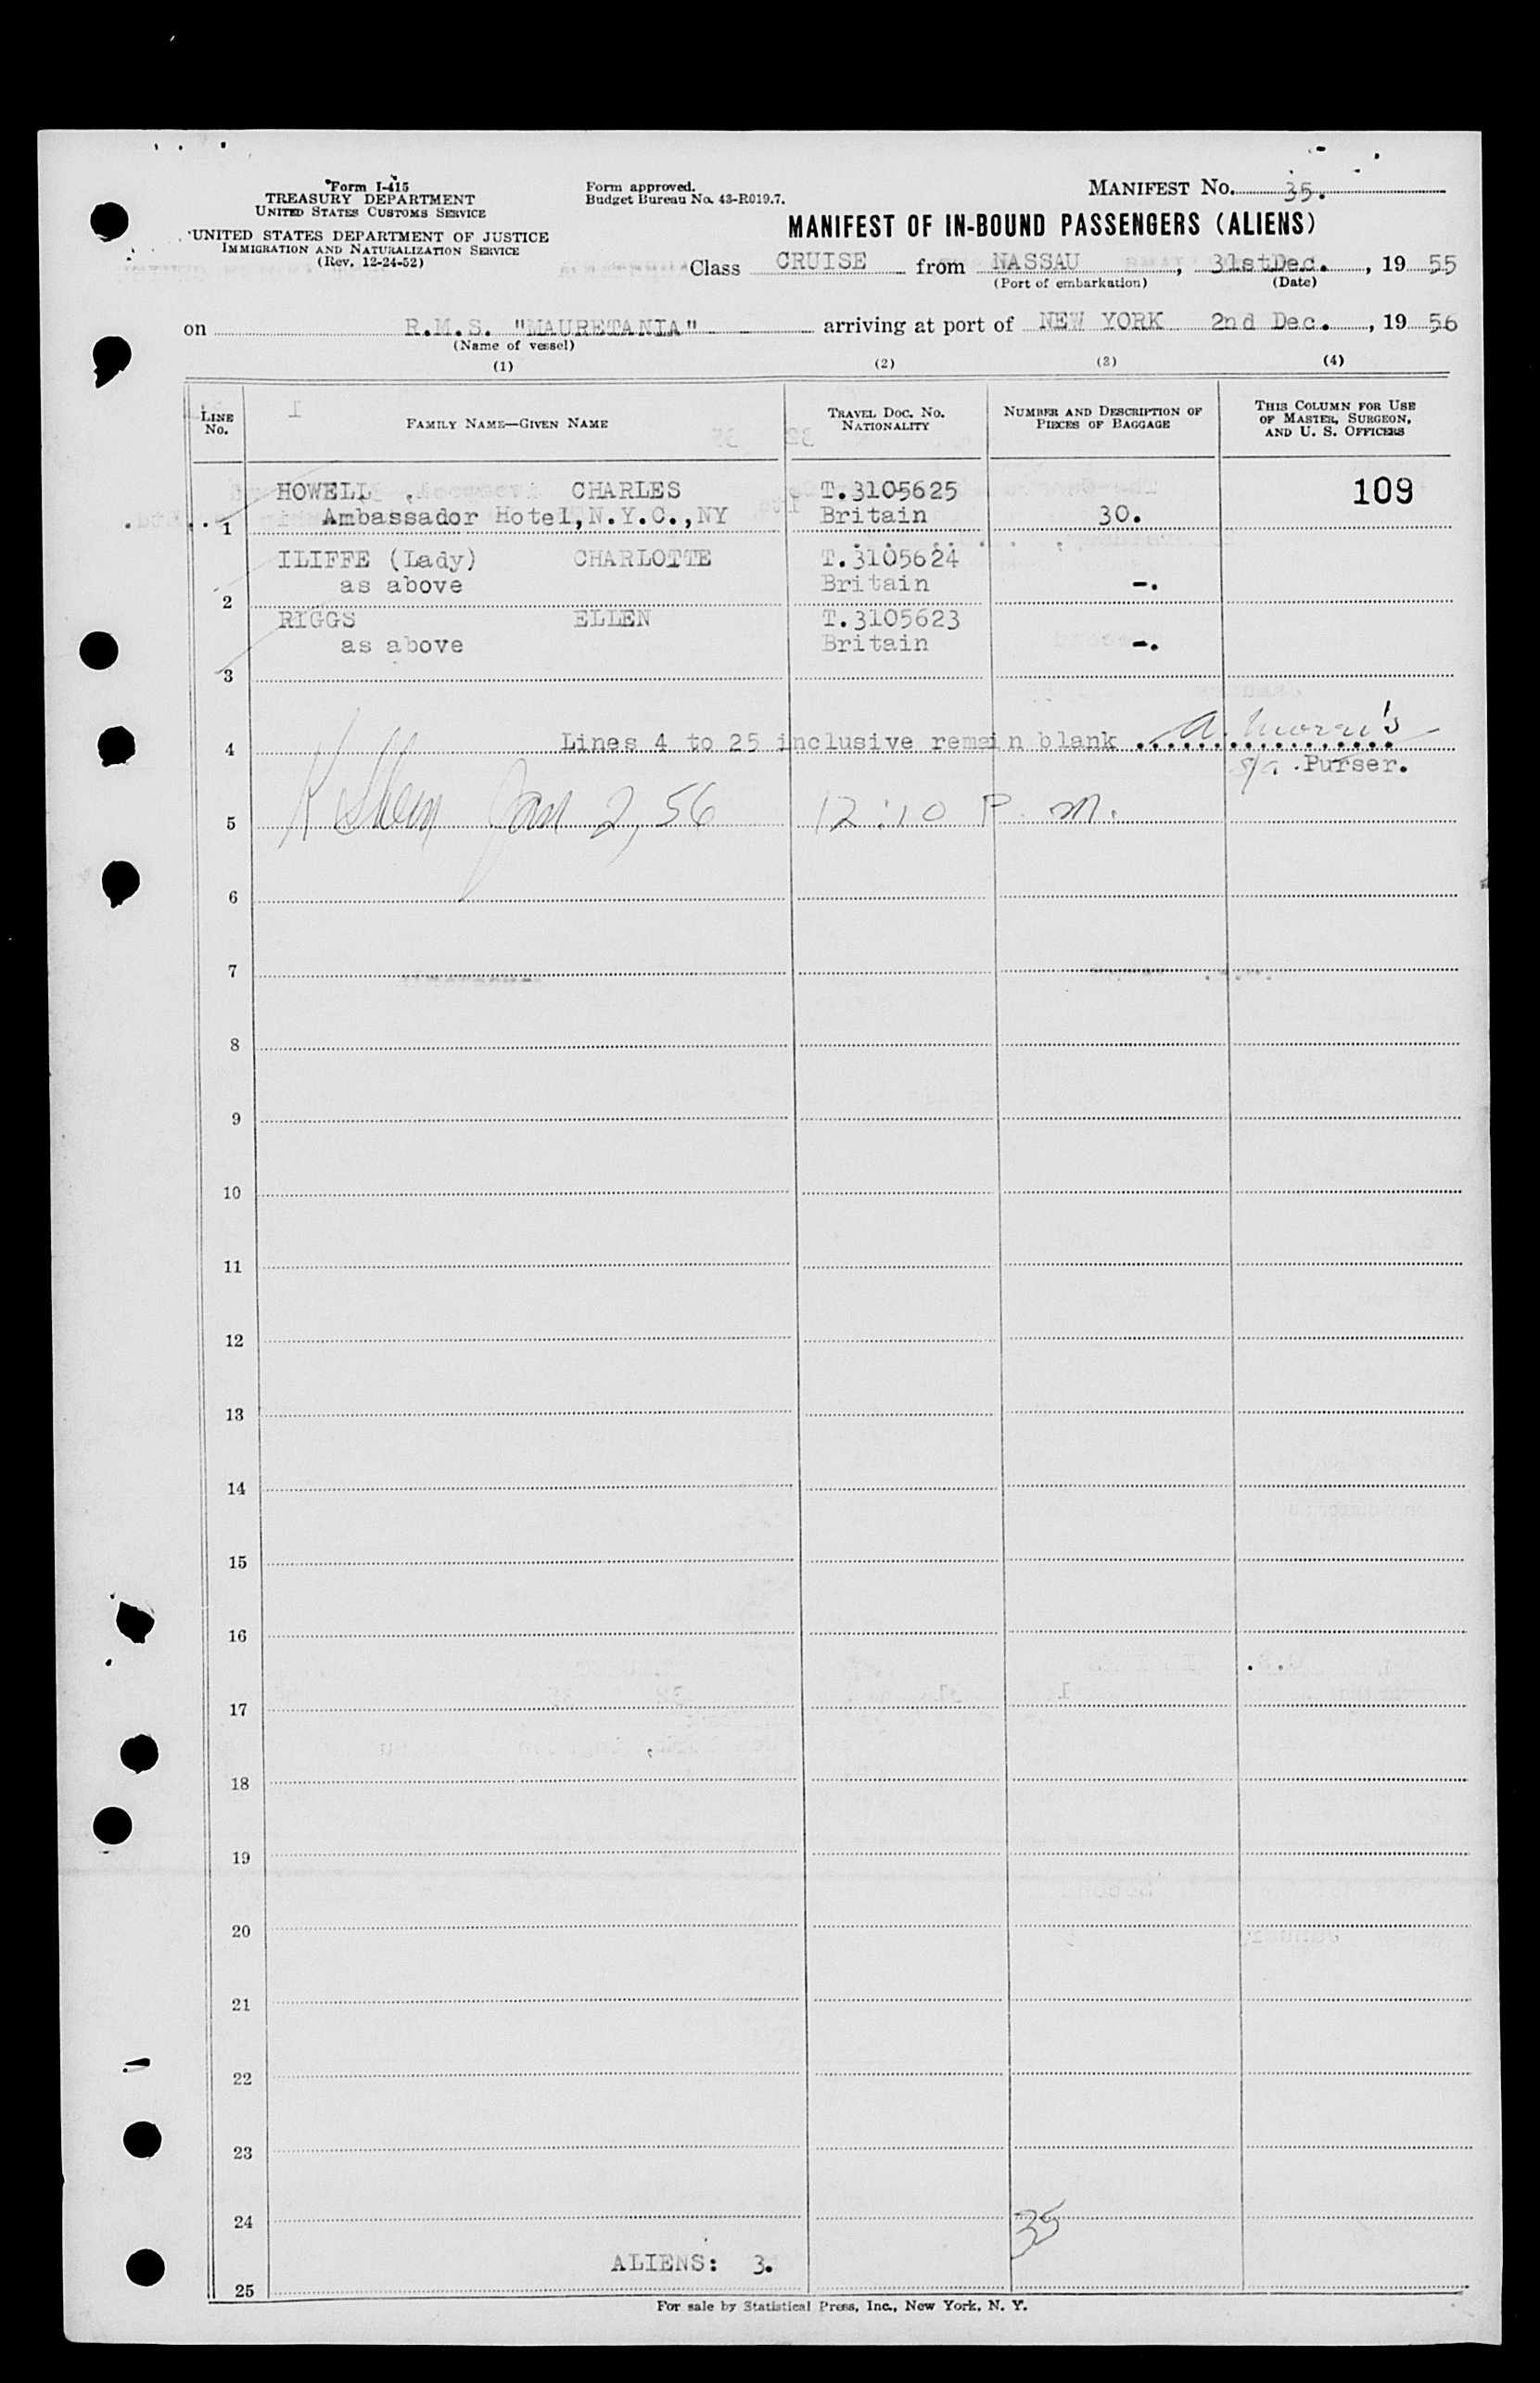 Form I-415
TREASURY DEPARTMENT
UNITED STATES CUSTOMS SERVICE
UNITED STATES DEPARTMENT OF JUSTICE
IMMIGRATION AND NATURALIZATION SERVICE
(Rev. 12-24-52)
Form approved.
Budget Bureau No. 43-R019.7.
MANIFEST No. 35.
MANIFEST OF IN-BOUND PASSENGERS (ALIENS)
Class CRUISE from NASSAU, 31stDec., 19 55
(Port of embarkation) (Date)
on R.M.S. "MAURETANIA" arriving at port of NEW YORK 2nd Dec., 19 56
(Name of vessel)
(1) (2) (3) (4)
LINE No. FAMILY NAME—GIVEN NAME TRAVEL DOC. No. NATIONALITY NUMBER AND DESCRIPTION OF PIECES OF BAGGAGE THIS COLUMN FOR USE OF MASTER, SURGEON, AND U. S. OFFICERS
HOWELL , CHARLES T.3105625 109
1 Ambassador Hotel,N.Y.C.,NY Britain 30.
ILIFFE (Lady) CHARLOTTE T.3105624
as above Britain -.
2
RIGGS ELLEN T.3105623
as above Britain -.
3
4 Lines 4 to 25 inclusive remain blank
Purser.
5 Jan 2, 56 12:10 P.M.
6
7
8
9
10
11
12
13
14
15
16
17
18
19
20
21
22
23
24 35
ALIENS: 3.
25
For sale by Statistical Press, Inc., New York, N. Y.